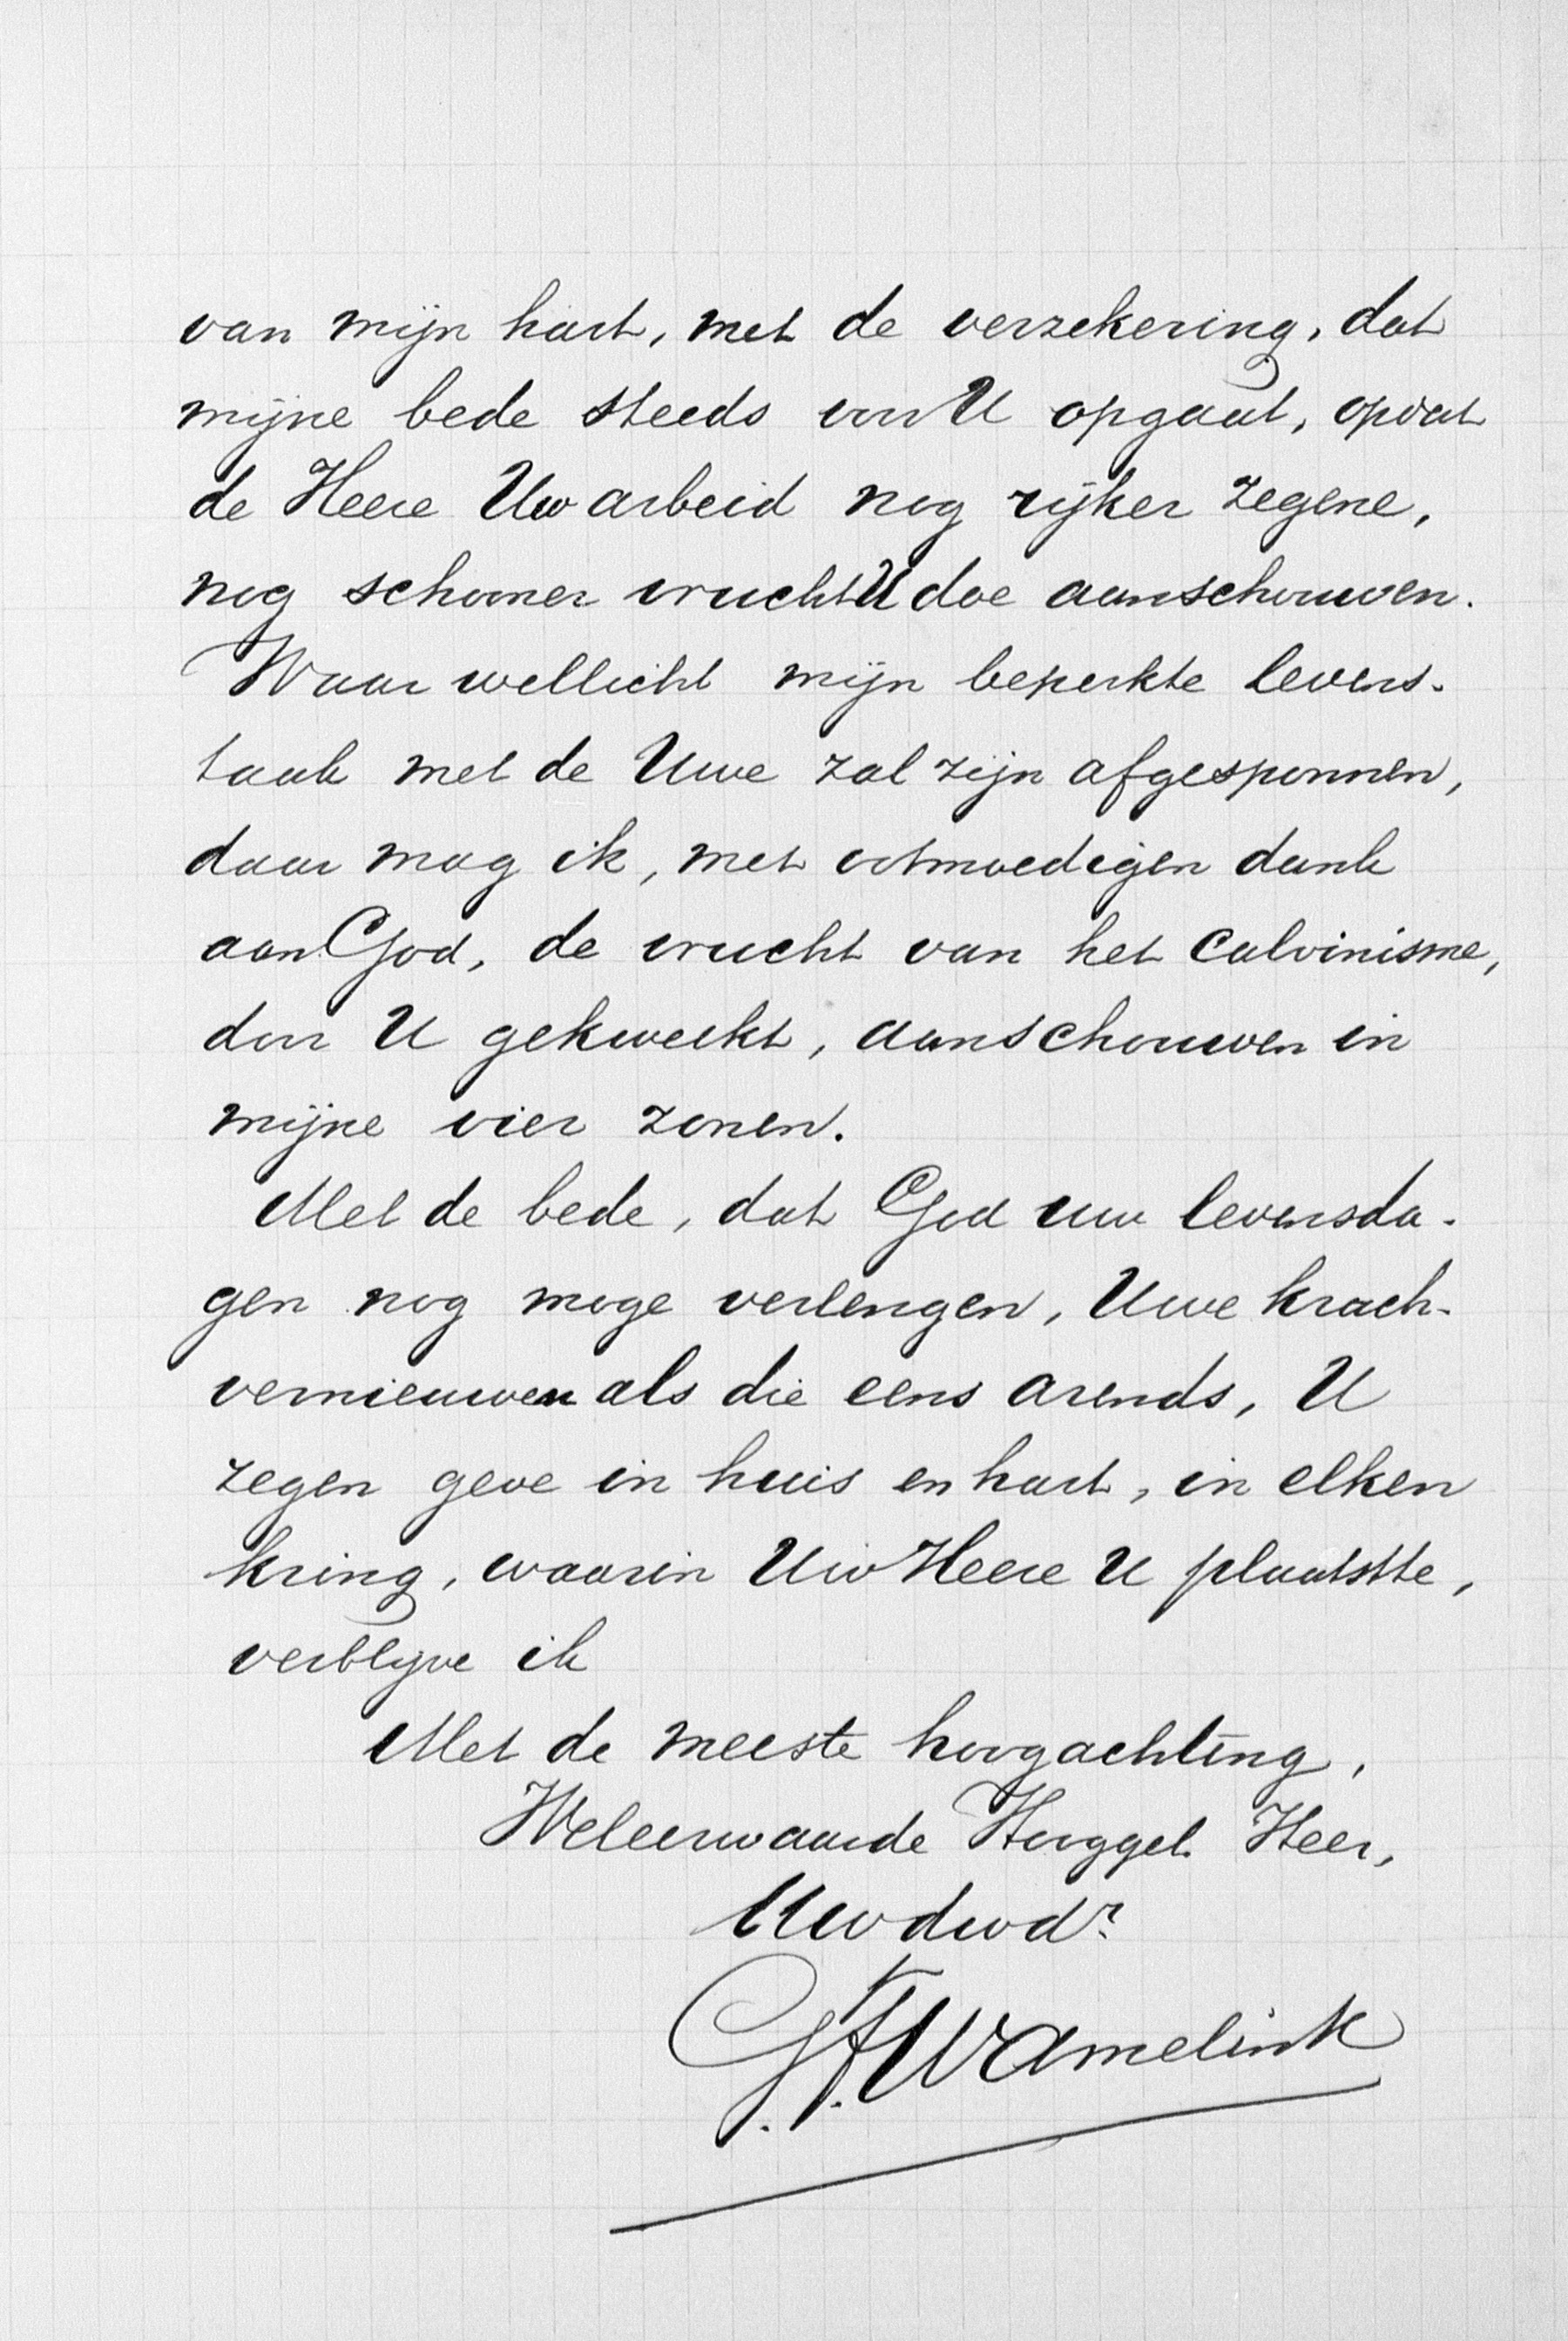 van mijn hart, met de verzekering, dat
mijne bede steeds voor U opgaat, opdat
de Heere Uw arbeid nog rijker zegene,
nog schooner vrucht U doe aanschouwen.
Waar wellicht mijn beperkte levens-
taak met de Uwe zal zijn afgesponnen,
daar mag ik, met ootmoedigen dank
aan God, de vrucht van het Calvinisme,
door U gekweekt, aanschouwen in
mijne vier zonen.
Met de bede, dat God uw levensda-
gen nog moge verlengen, Uwe krach-
vernieuwen als die eens arends, U
zegen geve in huis en hart, in elken
kring, waarin Uw Heere U plaatstte,
verblijve ik
Met de meeste hoogachting,
Weleerwaarde Hooggel. Heer,
Uw dwdr
G. F. Wamelink